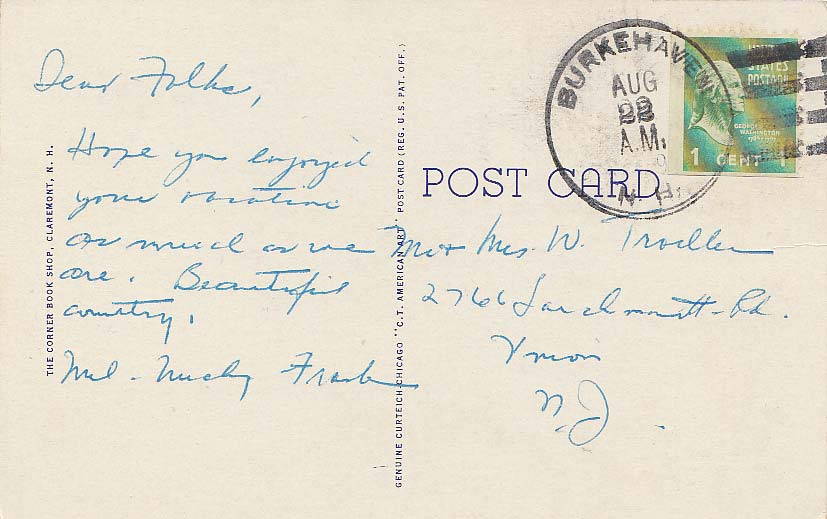 Dear Folks,
Hope you enjoyed
your vacation
as much as we
are. Beautiful
country.
Mel - Frank
THE CORNER BOOK SHOP, CLAREMONT, N. H.
GENUINE CURTEICH-CHICAGO "C.T. AMERICAN ART" POST CARD (REG. U.S. PAT. OFF.)
POST CARD
BURKEHAVEN
AUG
22
A.M.
N.H.
UNITED
STATES
POSTAGE
GEORGE
WASHINGTON
1 CENT 1
Mr + Mrs. W.
2766 Larchmont Rd.
Union
N.J.